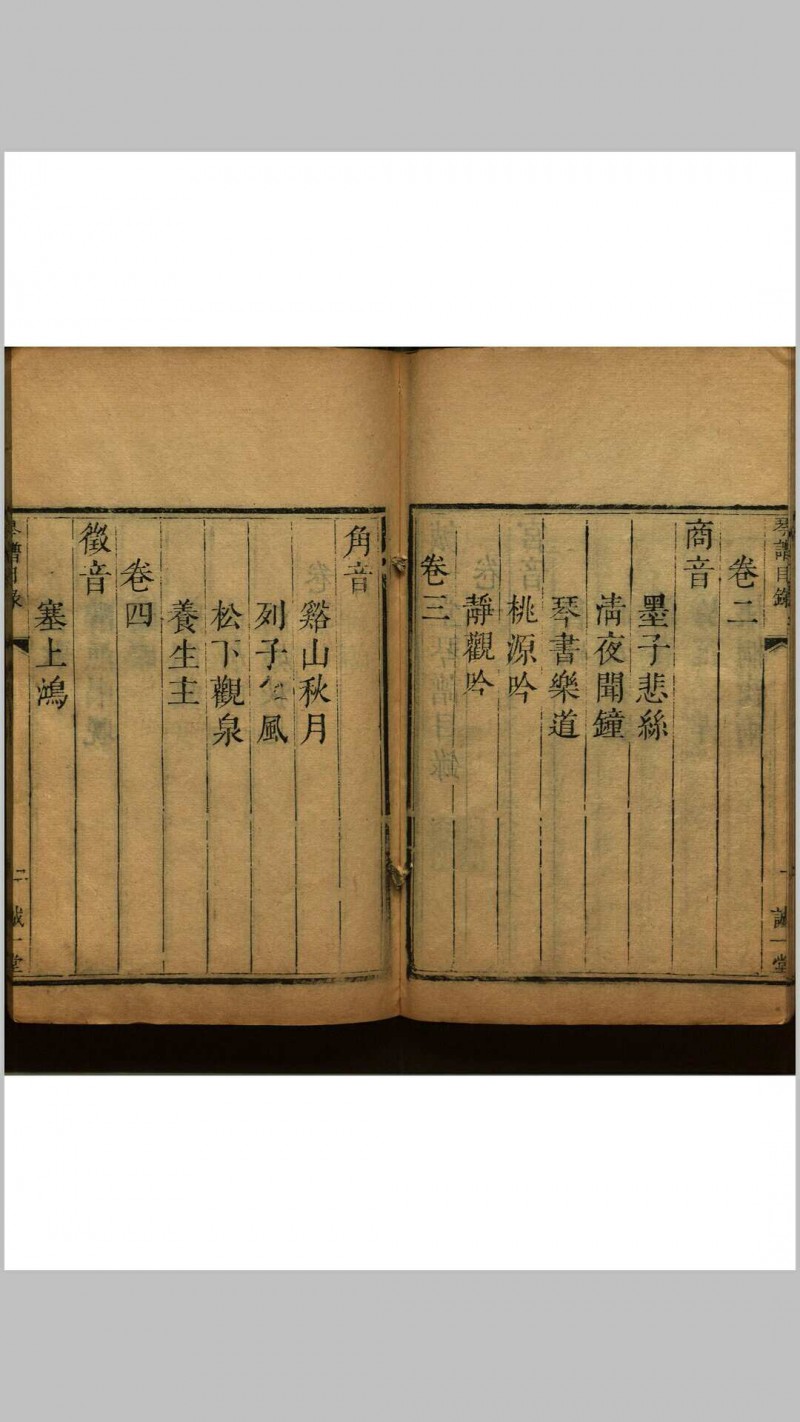 琴譜目錄
一
誠一堂
卷二
商音
墨子悲絲
清夜聞鐘
琴書樂道
桃源吟
靜觀吟
卷三
角音
谿山秋月
列子 風
松下觀泉
養生主
卷四
徵音
塞上鴻
譜目錄
二
誠一堂